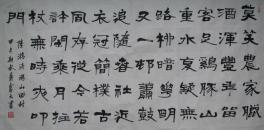 莫笑農家臘
酒渾豐年留
客足雞豚山
重水複疑無
路柳暗花明
又一村簫鼓
追隨春社近
衣冠簡樸古
風存從今若
許閑乘月拄
杖無時夜叩
門
陸游詩游山西村